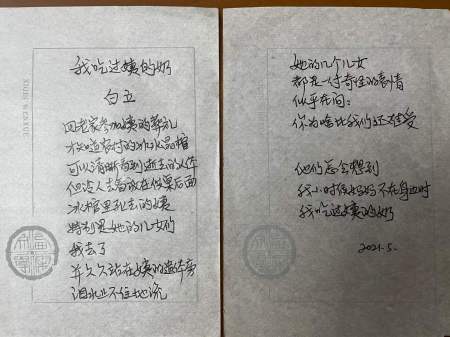 我吃过姨的奶
白五
回老家参加姨的葬礼
才知道农村的冰水晶棺
可以清晰看到逝去的体
但没人去看放在供桌后面
冰棺里死去的姨
特别是她的儿女们
我去了
并久久站在姨的遗体旁
泪水止不住地流
她的几个儿女
都是一付奇怪的表情
似乎在问：
你为啥比我们还难受
他们怎会想到
我小时候妈妈不在身边时
我吃过姨的奶
2021.5.